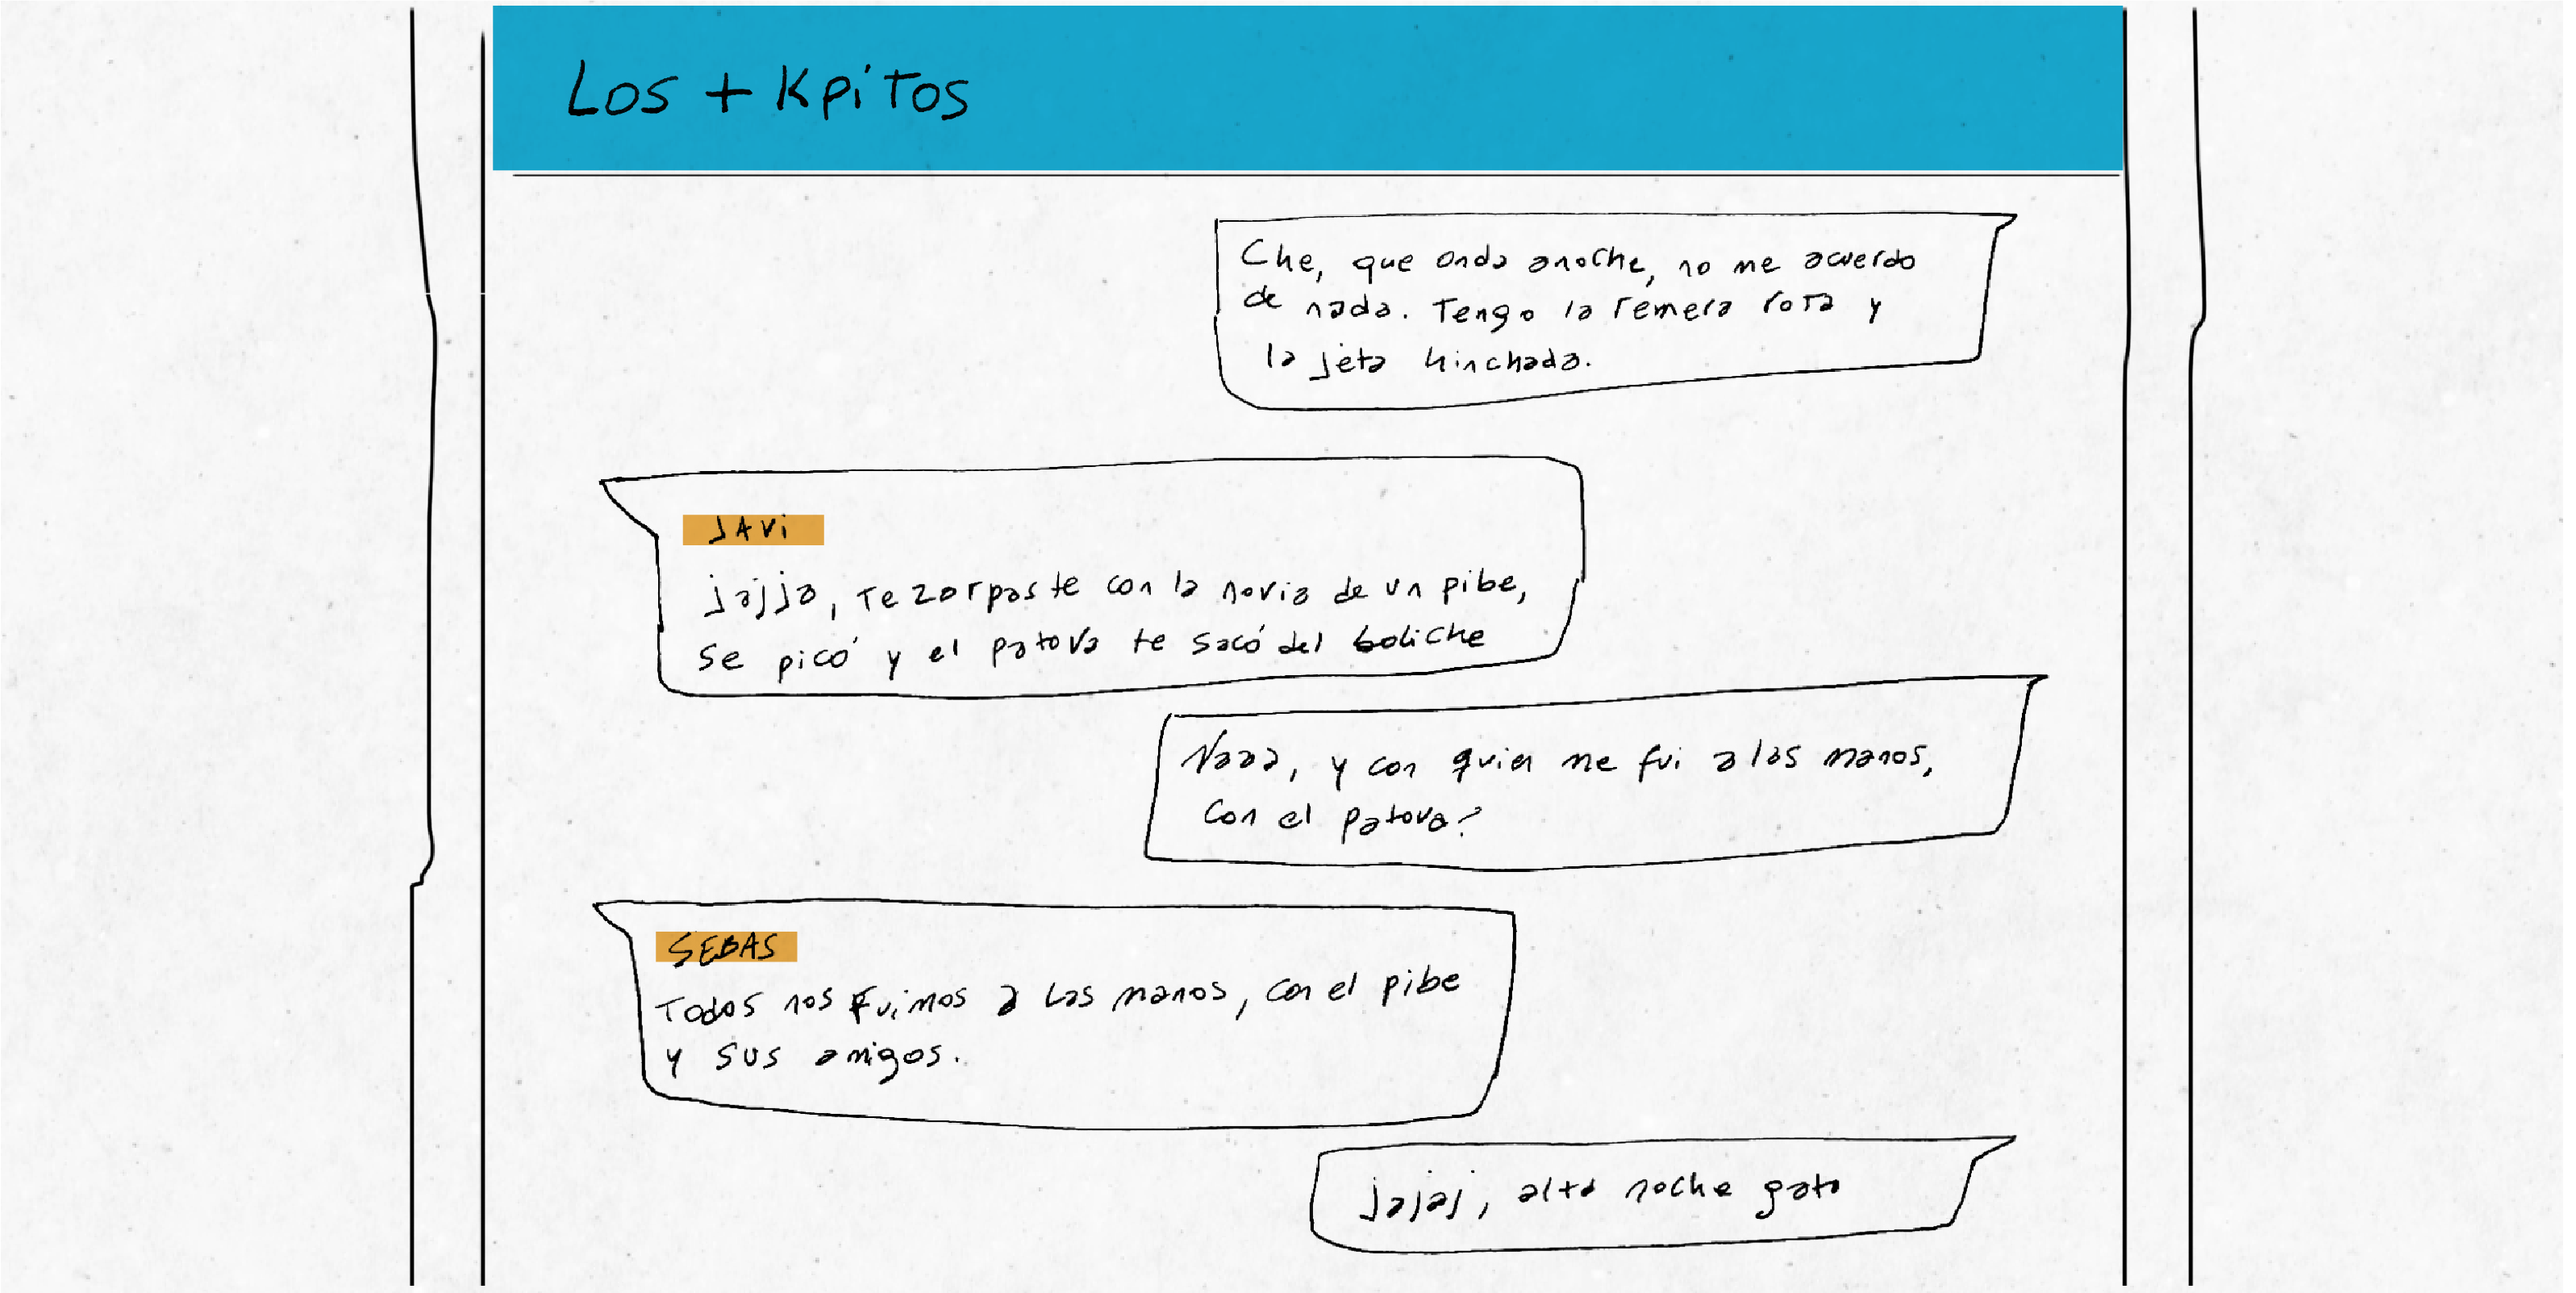 Los + Kpitos
Che, que onda anoche, no me acuerdo
de nada. Tengo la remera rota y
la jeta hinchada.
JAVi
jajja, Te zarpaste con la novia de un pibe,
se picó y el patova te sacó del boliche
Naaa, y con quien me fui a las manos,
con el patova?
SEBAS
Todos nos fuimos a las manos, con el pibe
y sus amigos.
jajaj, alta noche gato